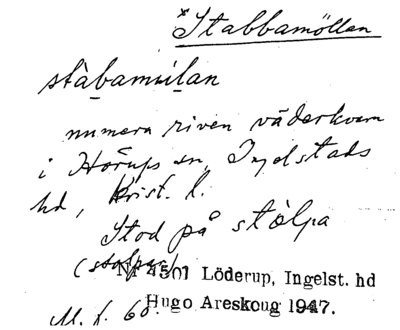 *Stabbamöllan
stàbamülan
numera riven väderkvarn
i Hörups sn, Ingelstads
hd, Krist. l.
Stod på stolpa
(stolpar)
Nr 4501 Löderup, Ingelst. hd
Hugo Areskoug 1947.
M. f. 60.